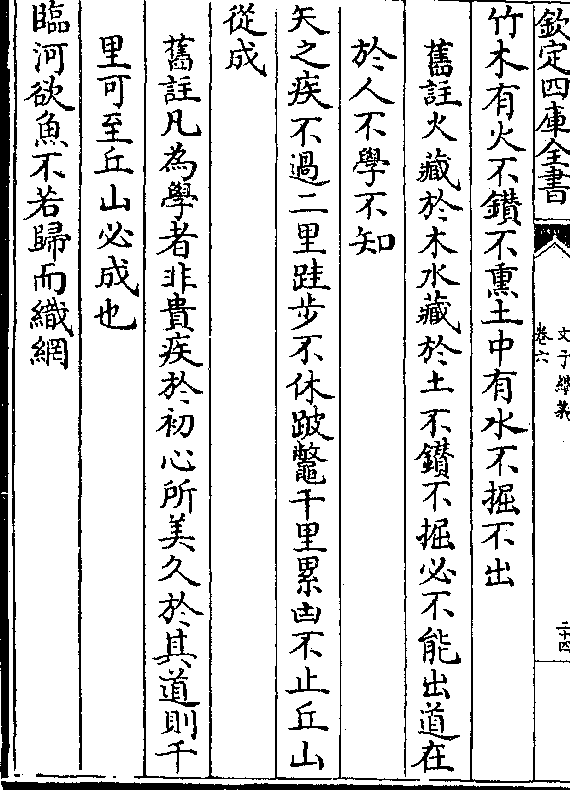 欽定四庫全書
文子纘義
卷六
二十四
竹木有火不鑚不熏土中有水不掘不出
舊註火藏於木水藏於土不鑚不掘必不能出道在
於人不學不知
矢之疾不過二里跬步不休跛鼈千里累凷不止丘山
從成
舊註凡為學者非貴疾於初心所美久於其道則千
里可至丘山必成也
臨河欲魚不若歸而織網